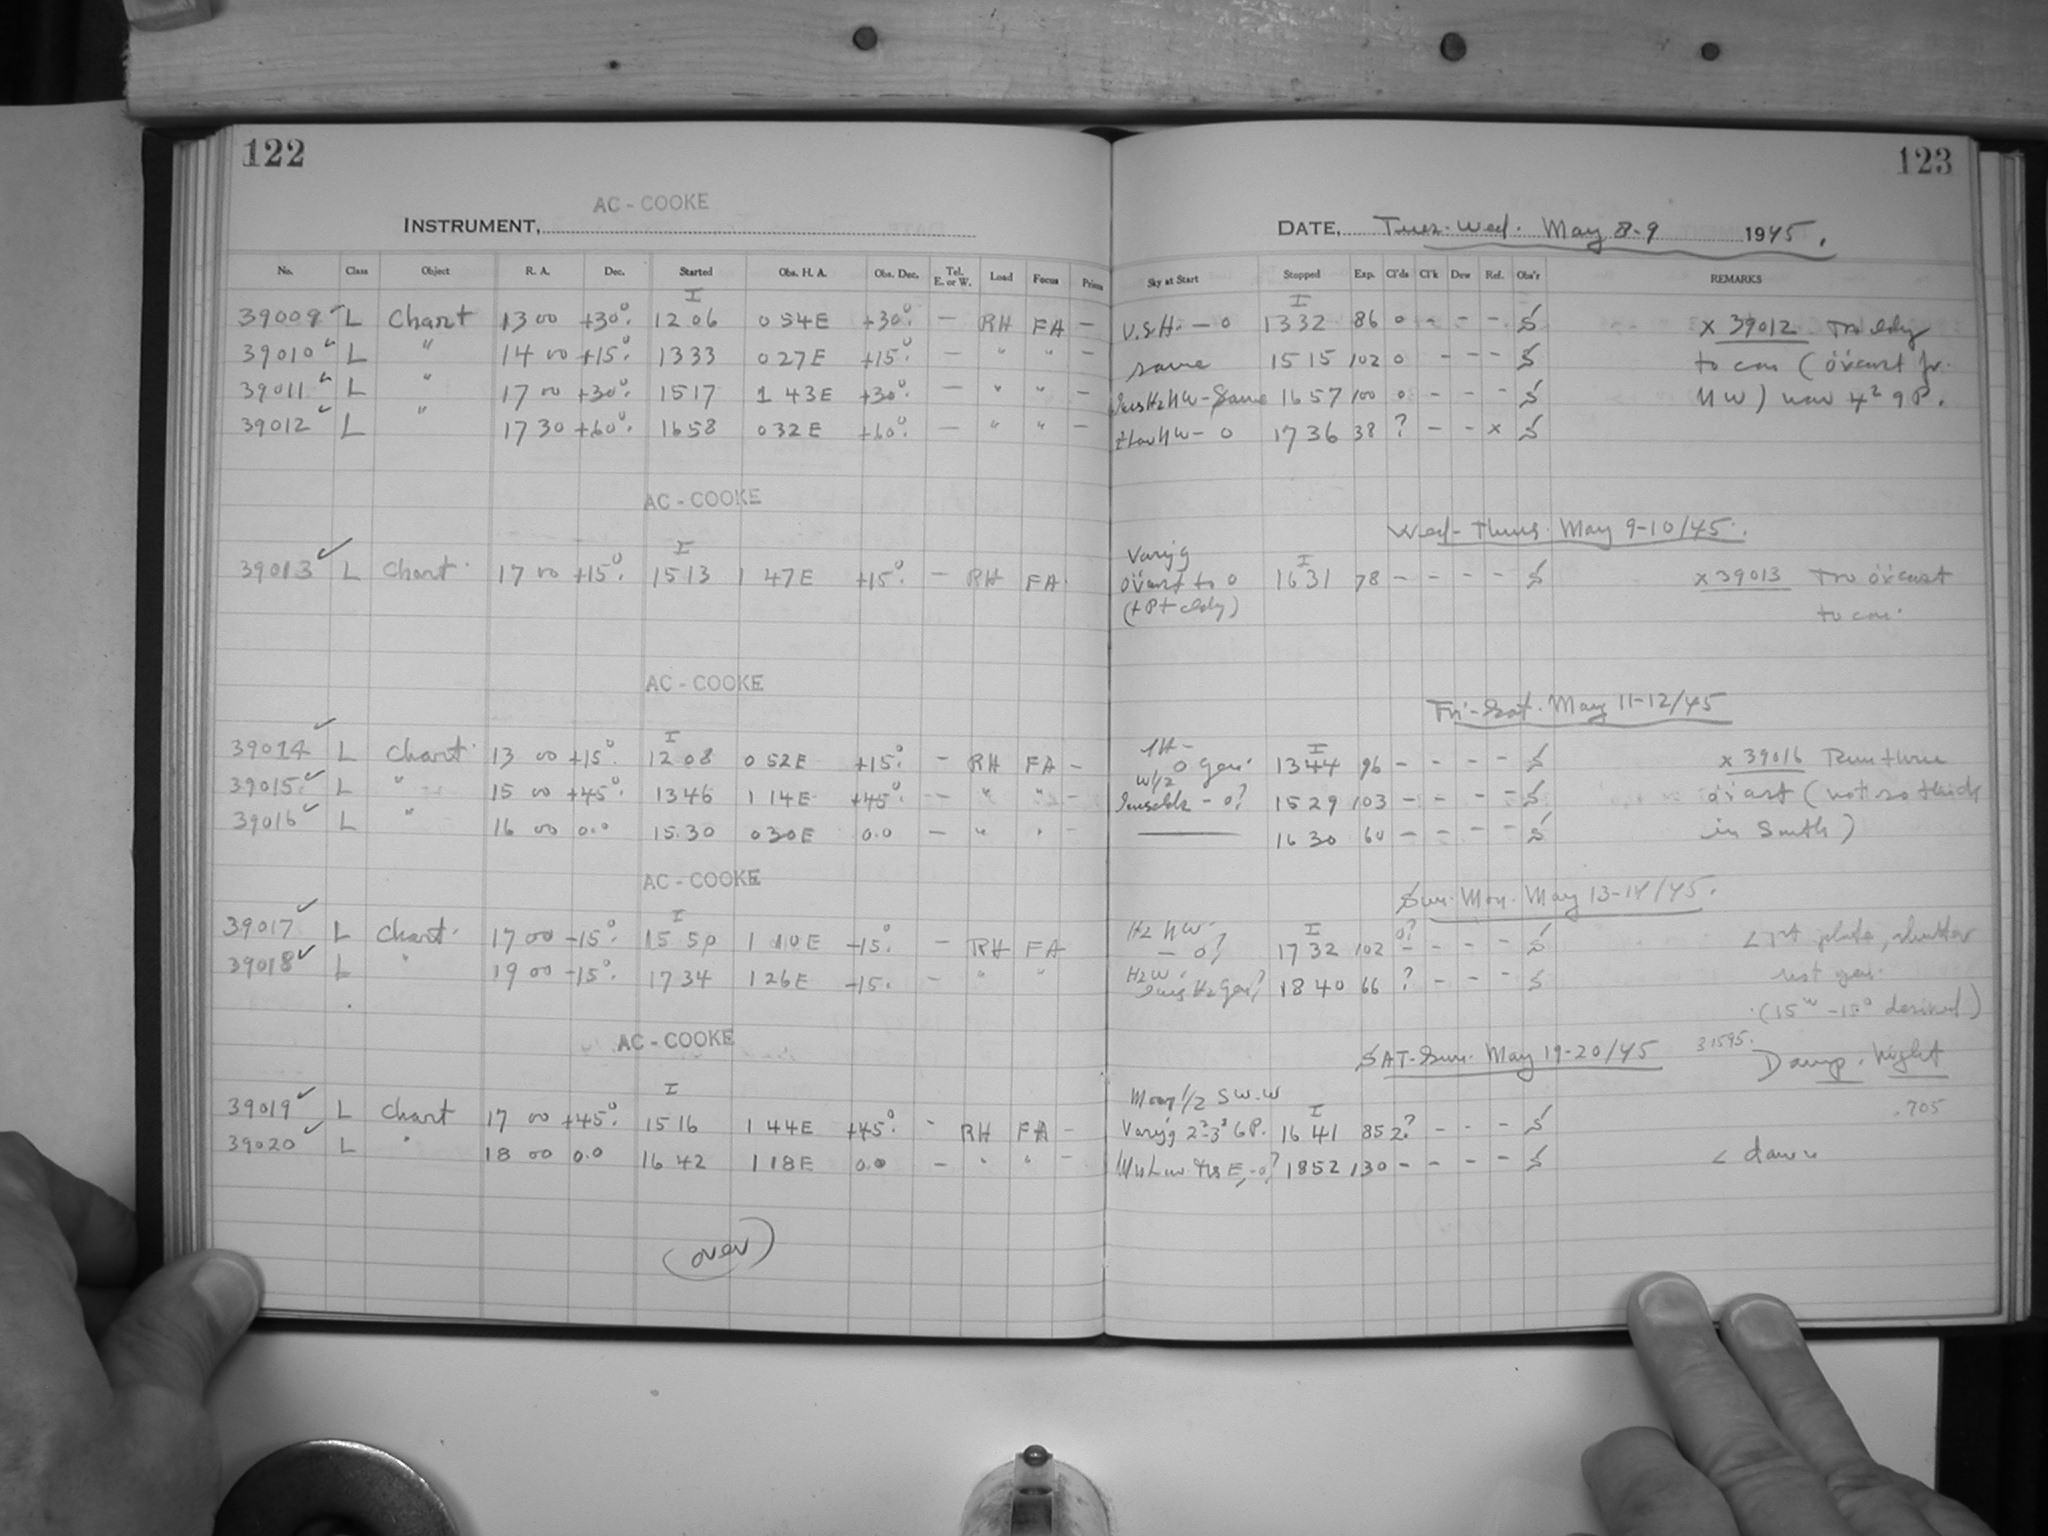 122
123
AC - COOKE
INSTRUMENT,
DATE, Tues-Wed. May 8-9 1945.
No. Class Object R. A. Dec. Started Obs. H. A. Obs. Dec. Tel. E. or W. Load Focus Prism Sky at Start Stopped Exp. Cl'ds Cl'k Dew Ref. Obs'r REMARKS
I I
39009 ✓ L Chart 13 00 +30°. 12 06 0 54E +30°. — RH FA — V.S.H. — 0 13 32 86 0 - - - S x 39012 Tro cldy
39010 ✓ L " 14 00 +15°. 13 33 0 27E +15°. — " " — same 15 15 102 0 - - - S to con (o'cast fr.
39011 ✓ L " 17 00 +30°. 15 17 1 43E +30°. — " " — Same 16 57 100 0 - - - S NW)
39012 ✓ L " 17 30 +60°. 16 58 0 32E +60°. — " " — NW — 0 17 36 38 ? - - x S
AC - COOKE
Wed-Thurs. May 9-10/45.
I Vary'g I
39013 ✓ L Chart. 17 00 +15°. 15 13 1 47E +15°. — RH FA. o'cast to 0 16 31 78 - - - - S x 39013 Tro o'cast
to con.
AC - COOKE
Fri-Sat. May 11-12/45
I I
39014 ✓ L Chart. 13 00 +15°. 12 08 0 52E +15°. — RH FA — 13 44 96 - - - - S x 39016 Run thru
39015 ✓ L " 15 00 +45°. 13 46 1 14E +45°. — " " — - 0? 15 29 103 - - - - S o'cast (not so thick
39016 ✓ L " 16 00 0.0 15.30 0 30E 0.0 — " " — 16 30 60 - - - - S in South)
AC - COOKE
Sun-Mon. May 13-14/45.
I Hz NW. I 0?
39017 ✓ L Chart. 17 00 -15°. 15 50 1 10E -15°. — RH FA — 0? 17 32 102 - - - - S < 1st plate, shutter
39018 ✓ L " 19 00 -15°. 17 34 1 26E -15. — " " Hz W. 18 40 66 ? - - - S
(15ʰ -15° desired)
AC - COOKE
SAT-Sun. May 19-20/45 31595. Damp. Night
I Moon 1/2 SW-W I
39019 ✓ L Chart 17 00 +45° 15 16 1 44E +45°. - RH FA — Vary'g 16 41 85 2? - - - S .705
39020 ✓ L " 18 00 0.0 16 42 1 18E 0.0 — " " — 18 52 130 - - - - S < dawn
(over)